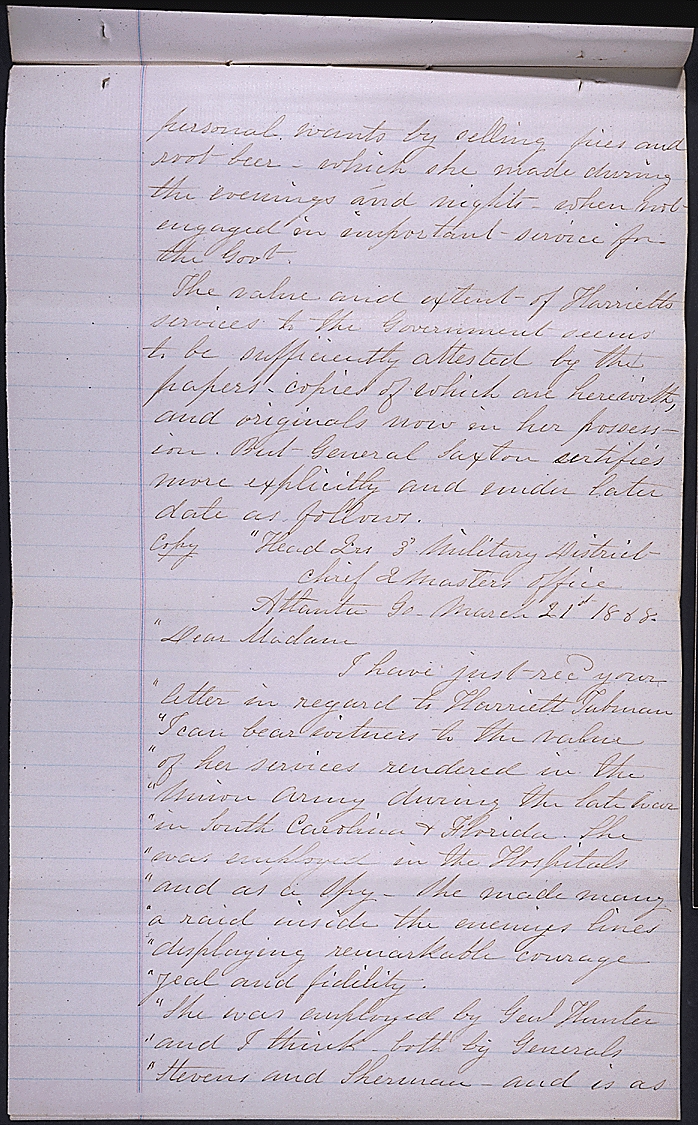 personal wants by selling pies and
root beer - which she made during
the evenings and nights - when not
engaged in important service for
the Govt.
The value and extent of Harrietts
services to the Government seems
to be sufficiently attested by the
papers copies of which are herewith,
and originals now in her possess-
ion. But General Saxton certifies
more explicitly and under later
date as follows.
Copy "Head Qrs 3d Military District
Chief Q Masters Office
Atlanta Ga March 21st 1868.
"Dear Madam
I have just recd your
"letter in regard to Harriett Tubman
"I can bear witness to the value
"of her services rendered in the
"Union Army during the late War
"in South Carolina & Florida. She
"was employed in the Hospitals
"and as a Spy - She made many
"a raid inside the enemys lines
"displaying remarkable courage
"zeal and fidelity.
"She was employed by Genl Hunter
"and I think both by Generals
"Stevens and Sherman - and is as